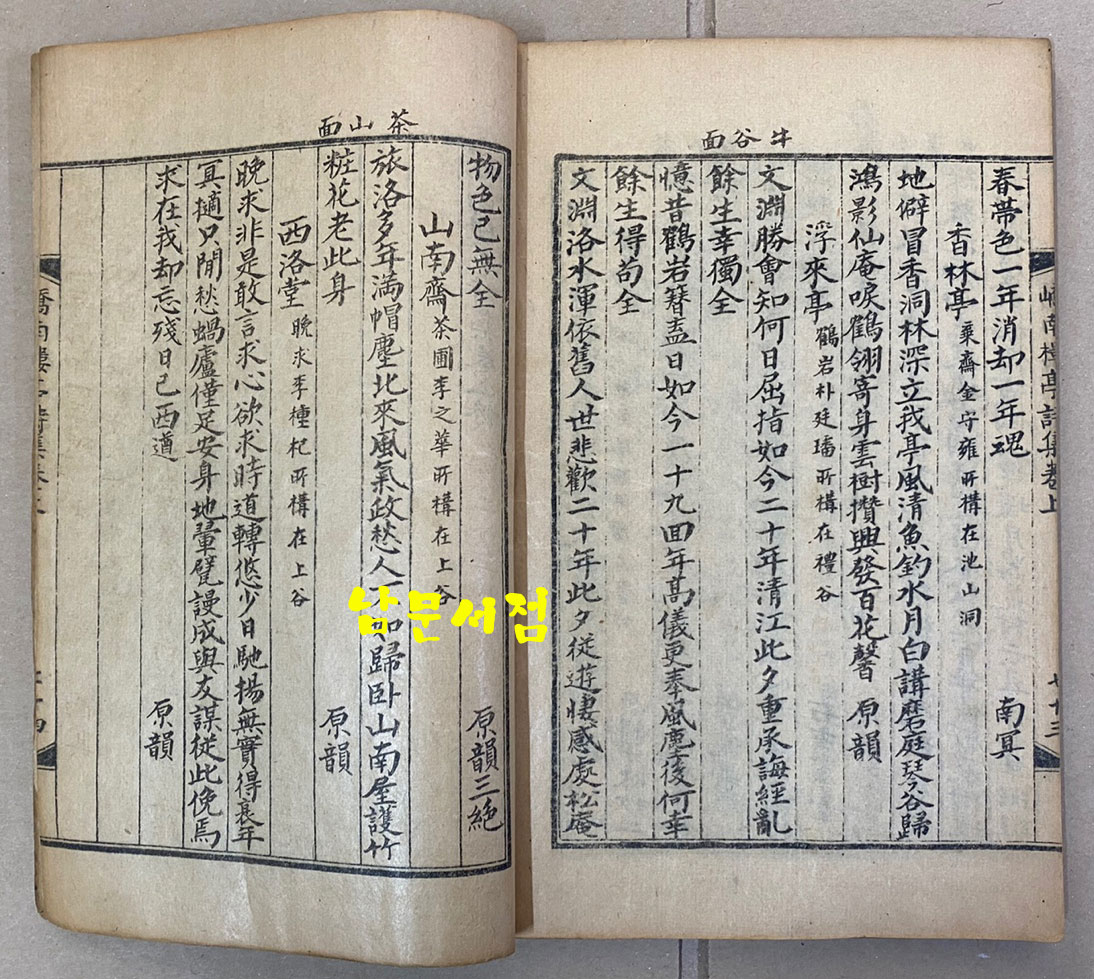 牛谷面
嶠南樓亭詩集卷上
春帶色一年消却一年魂　南冥
香林亭 藥齋金守雍所構在池山洞
地僻冒香洞林深立我亭風清魚釣水月白講磨庭琴谷歸
鴻影仙庵唳鶴翎寄身雲樹攢興發百花馨　原韻
浮來亭 鶴岩朴廷璠所構在禮谷
文淵勝會知何日屈指如今二十年清江此夕重承誨經亂
餘生幸獨全
憶昔鶴岩簪盍日如今一十九回年高儀更奉風塵後何幸
餘生得苟全
文淵洛水渾依舊人世悲歡二十年此夕從遊悽感處松庵
茶山面
物色已無全　原韻三絶
山南齋 茶圃李之華所構在上谷
旅洛多年滿帽塵北來風氣政愁人不如歸卧山南屋護竹
粧花老此身　原韻
西洛堂 晚求李種杞所構在上谷
晚求非是敢言求心欲求時道轉悠少日馳楊無實得衰年
冥擿只閒愁蝸廬僅足安身地甓謾成與友謀從此俛焉
求在我却忘殘日已西遒　原韻
남문서점